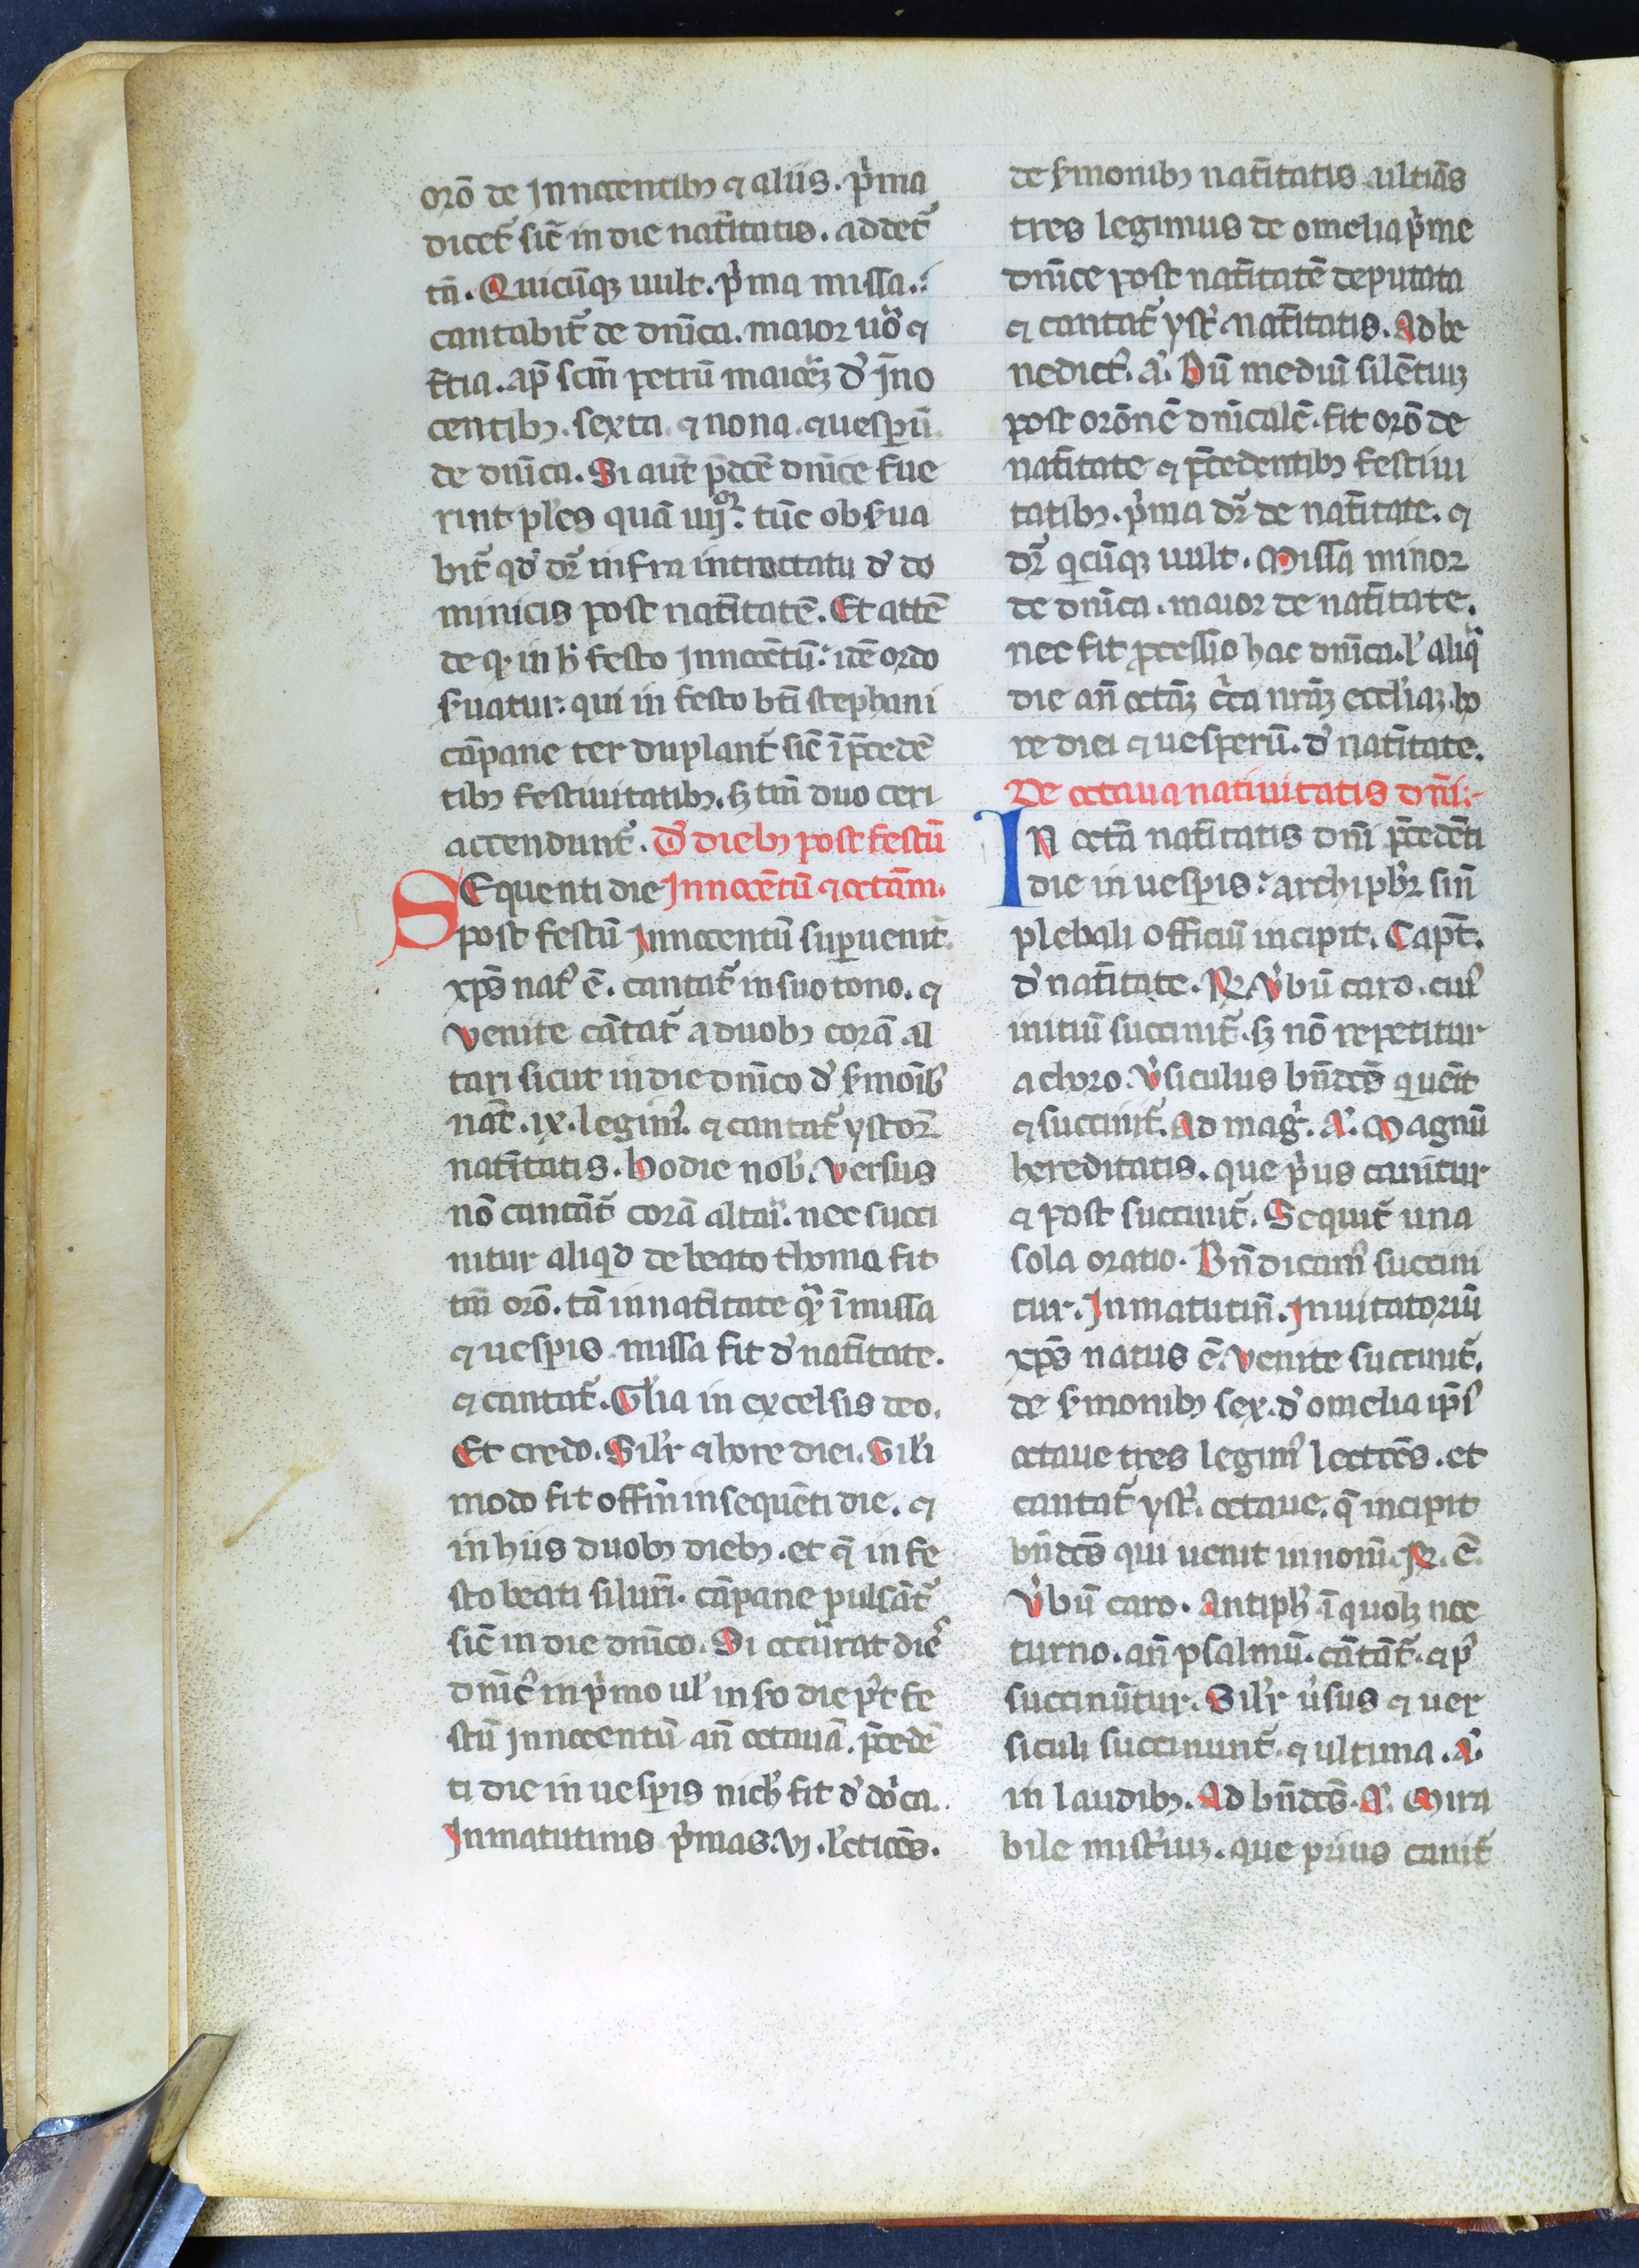 orō de Innocentibꝫ ⁊ aliis. pͥma
dicet᷑ sic̄ in die nat̄itatis. addet᷑
tn̄. Quicūqꝫ uult. pͥma missa.
cantabit᷑ de dn̄ica. maior uo̎ ⁊
t̄cia. ap̄ scm̄ petrū maiorē d̛ Ino
centibꝫ. sexta ⁊ nona ⁊ uesꝑū
de dn̄ica. Si aut̄ p̄dcē dn̄ice fue
rint ples quā iiijoꝛ. tūc obẜua
bit᷑ qd̛ dr̄ infra in tractatu d̛ do
minicis post nat̄itatē. Et attē
de ꝙ in h̛ festo Innocētū. idē ordo
ẜuatur. qui in festo bt̄i stephani
cāpane ter duplant᷑ sic̄ ī p̄cedē
tibꝫ festiuitatibꝫ. sꝫ tm̄ duo cerei
accendunt᷑. D̛ diebꝫ post festū
SEquenti die Innocētū ⁊ octām.
post festū Innocentū suꝑuenit.
xp̄s nat᷒ ē. cantat᷑ in suo tono. ⁊
venite cātat᷑ a duobꝫ corā al
tari sicut in die dn̄ico d̛ ẜmoībꝫ
nat̄. ix. legim᷒. ⁊ cantat᷑ ystoꝝ
nat̄itatis. hodie nob̛. versus
nō cantāt᷑ corā altaͥ. nec succi
nitur aliqͥd de beato thoma fit
tm̄ orō. tā in nat̄itate qͣꝫ ī missa
⁊ uesꝑis. missa fit d̛ nat̄itate.
⁊ cantat᷑. Glia in excelsis deo.
Et credo. Silr ⁊ hore diei. Sili
modo fit offm̄ in sequēti die. ⁊
in hiis duobꝫ diebꝫ. et q̄ in fe
sto beati siluri. cāpane pulsāt᷑
sic̄ in die dn̄ico. Si occurrat dies
dn̄ic᷒ in pͥmo ul̛ in so die p᷒t fe
stū Innocentū an̄ octauā. p̄cedē
ti die in uesꝑis nich̛ fit d̛ do̎ca.
In matutinis pͥmas. vj. lcticēs.
de ẜmonibꝫ nat̄itatis ultiās
tres legimus de omelia pͥme
dn̄ice post nat̄itatē deputata
⁊ cantat᷑ yst̛. nat̄itatis. Ad be
nedict᷒. a̎. Dū mediū silētiuꝫ
post orōnē dn̄icalē. fit orō de
nat̄itate ⁊ p̄cedentibꝫ festiui
tatibꝫ. pͥma dr̄ de nat̄itate. ⁊
dr̄ qͥcūqꝫ uult. Missa minor
de dn̄ica. maior de nat̄itate.
nec fit ꝓcessio hac dn̄ica. l̛ aliqͣ
die an̄ octāꝫ cͥca nrāꝫ eccliaꝫ. ho
re diei ⁊ uesperū. d̛ nat̄itate.
De octaua natiuitatis dn̄i.
IN octā nat̄itatis dn̄i p̄cedēti
die in uesꝑis. archipbr̄ siu̅
plebali officiū incipit. Capt̄.
d̛ nat̄itate. ℞. V̛bū caro. cui᷒
initiū succinit᷑. sꝫ nō repetitur
a choro. V̛siculus bn̄dcs̄ qͥ uenit
⁊ succinit᷑. Ad mag̛. A̎. Magnū
hereditatis. que pͥus canitur
⁊ post succinit᷑. Sequit᷑ una
sola oratio. Bn̄dicam᷒ succini
tur. In matutin̄. Inuitatoriū
xp̄s natus ē. venite succinit᷑.
de ẜmonibꝫ sex. d̛ omelia ip̄i᷒
octaue tres legim᷒ lectcēs. et
cantat᷑ yst̛. octaue. q̄ incipit
bn̄dcs̄ qui uenit in noīe. ℞. ē.
V̛bū caro. Antiph̛ ī quolꝫ noc
turno. an̄ psalmū. cātāt᷑. ⁊ p᷒
succinūtur. Silr v̛sus ⁊ uer
siculi succinunt᷑. ⁊ ultima. A̎.
in laudibꝫ. Ad bn̄dcs̄. A̎. Mira
bile mist̛iuꝫ. que prius canit᷑